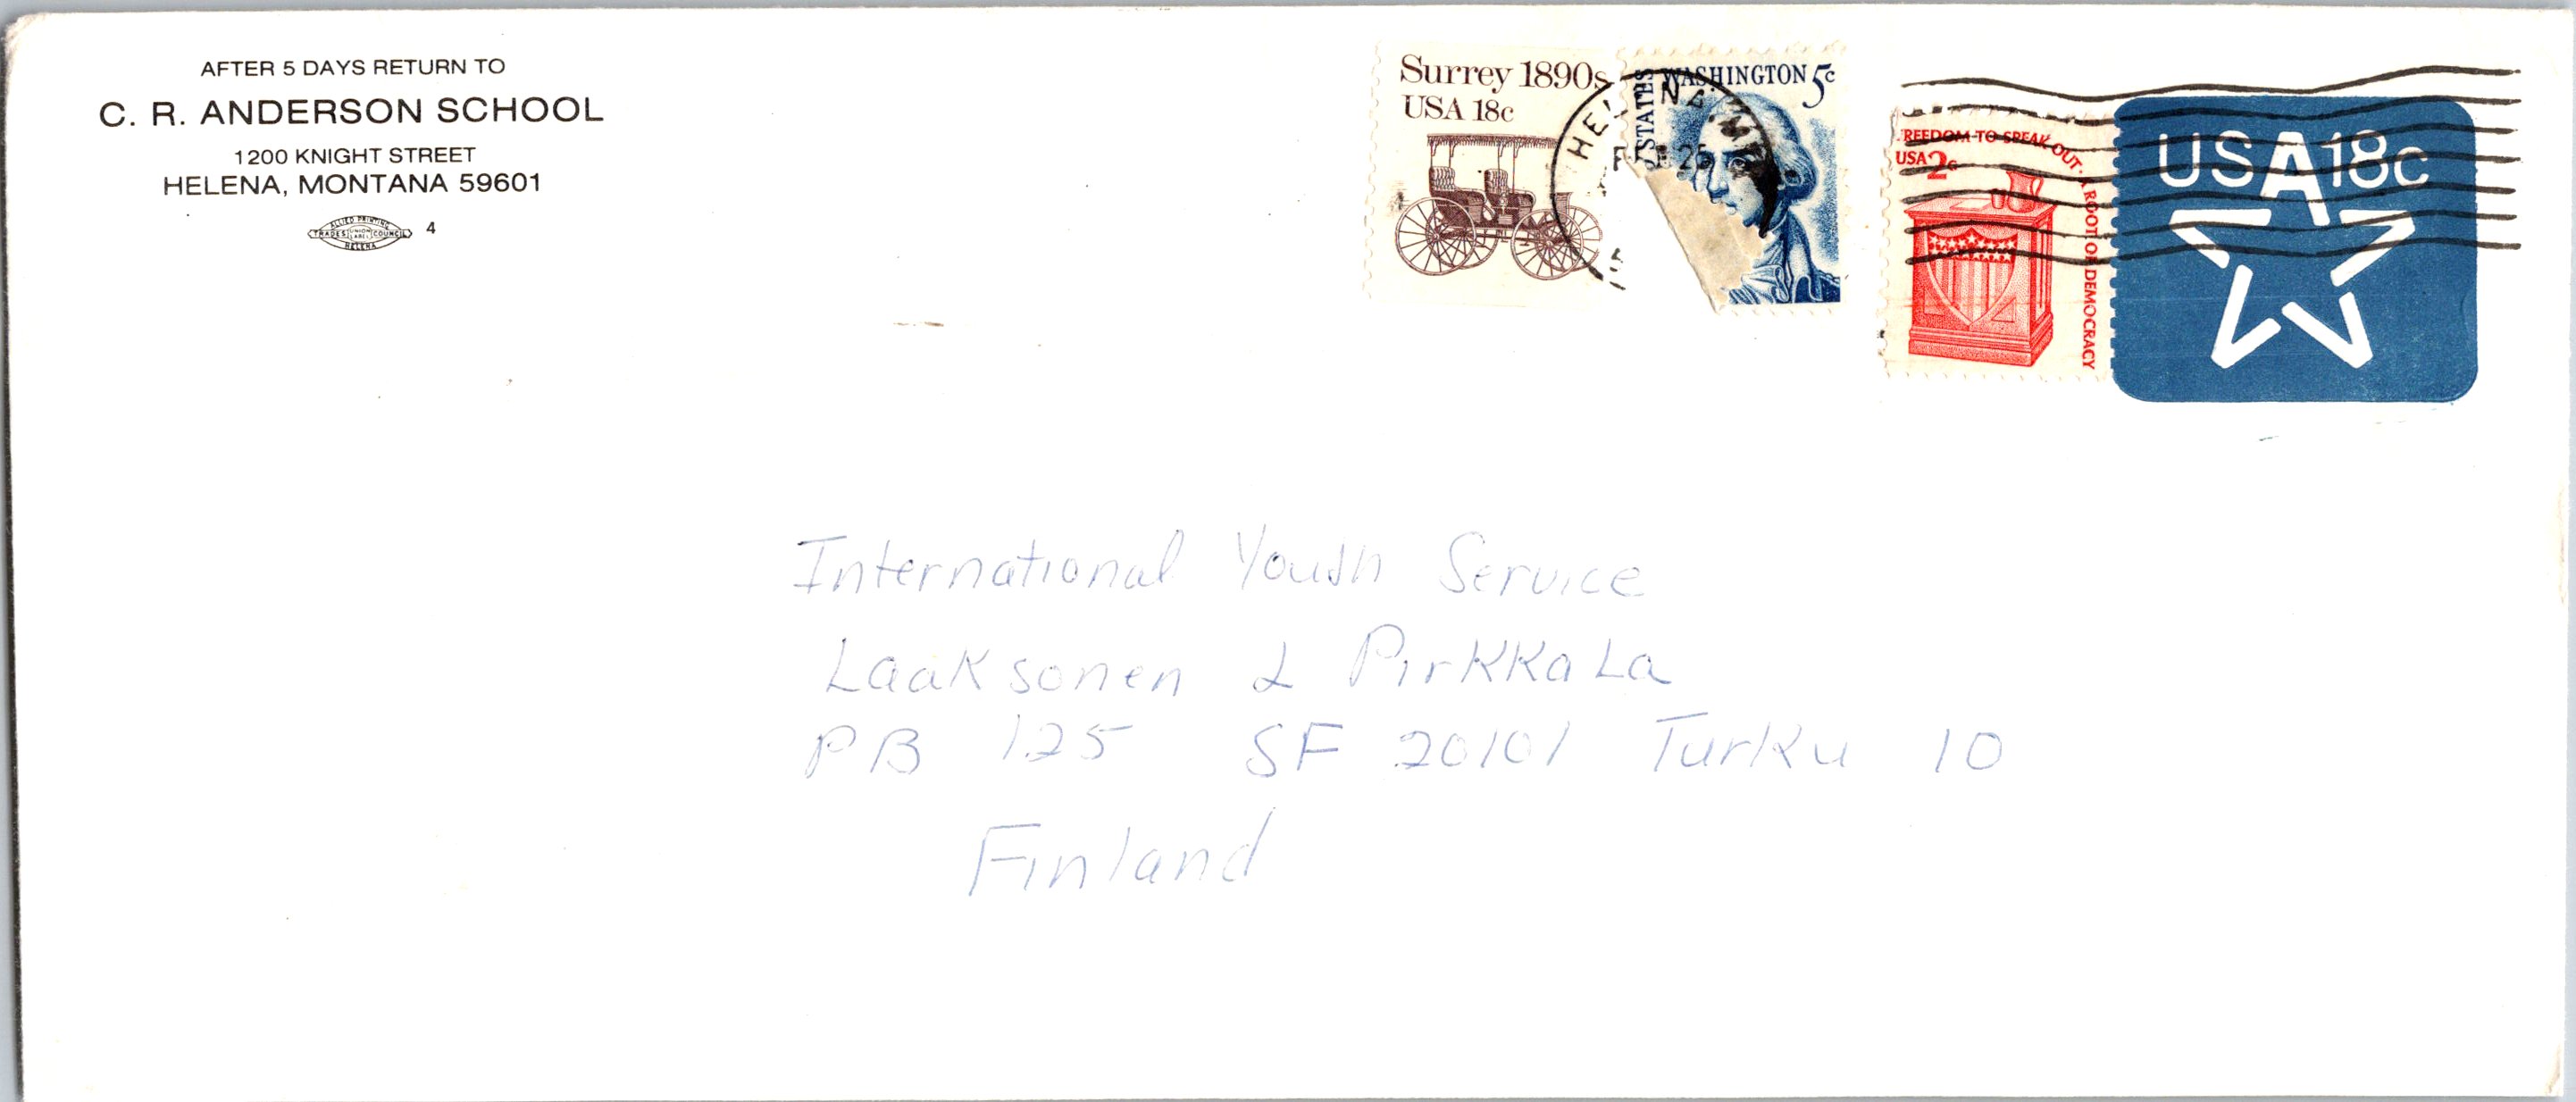 AFTER 5 DAYS RETURN TO
C. R. ANDERSON SCHOOL
1200 KNIGHT STREET
HELENA, MONTANA 59601
ALLIED PRINTING
TRADES UNION LABEL COUNCIL
HELENA
4
Surrey 1890s
USA 18c
STATES
WASHINGTON 5c
HELENA, MT
FEB 25
REEDOM TO SPEAK OUT · A ROOT OF DEMOCRACY
USA 2c
USA 18c
International Youth Service
Laaksonen & Pirkkala
PB 125 SF 20101 Turku 10
Finland